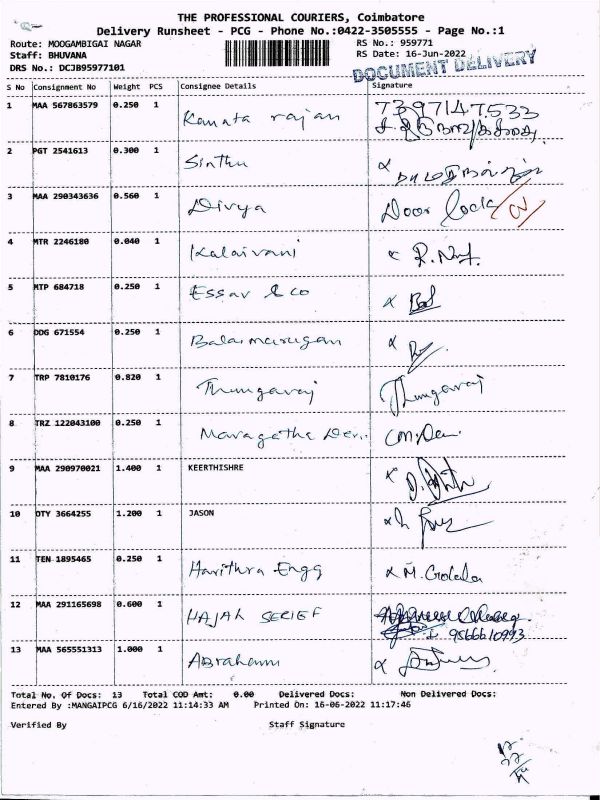 THE PROFESSIONAL COURIERS, Coimbatore
Delivery Runsheet - PCG - Phone No.:0422-3505555 - Page No.:1
Route: MOOGAMBIGAI NAGAR RS No.: 959771
Staff: BHUVANA RS Date: 16-Jun-2022
DRS No.: DCJB95977101 DOCUMENT DELIVERY
S No Consignment No Weight PCS Consignee Details Signature
1 MAA 567863579 0.250 1 Kamata rajan 7397147533
2 PGT 2541613 0.300 1 Sinthu
3 MAA 290343636 0.560 1 Divya Door lock
4 MTR 2246180 0.040 1 Kalaivani
5 MTP 684718 0.250 1 Essar & co
6 DDG 671554 0.250 1 Balamurugan
7 TRP 7810176 0.820 1 Thungavaj Thungavaj
8 TRZ 122043100 0.250 1 Maragatha Devi
9 MAA 290970021 1.400 1 KEERTHISHRE
10 DTY 3664255 1.200 1 JASON
11 TEN 1895465 0.250 1 Harithra Engg M. Gokila
12 MAA 291165698 0.600 1 HAJAH SERIEF
9566610993
13 MAA 565551313 1.000 1 Abraham
Total No. Of Docs: 13 Total COD Amt: 0.00 Delivered Docs: Non Delivered Docs:
Entered By :MANGAIPCG 6/16/2022 11:14:33 AM Printed On: 16-06-2022 11:17:46
Verified By Staff Signature